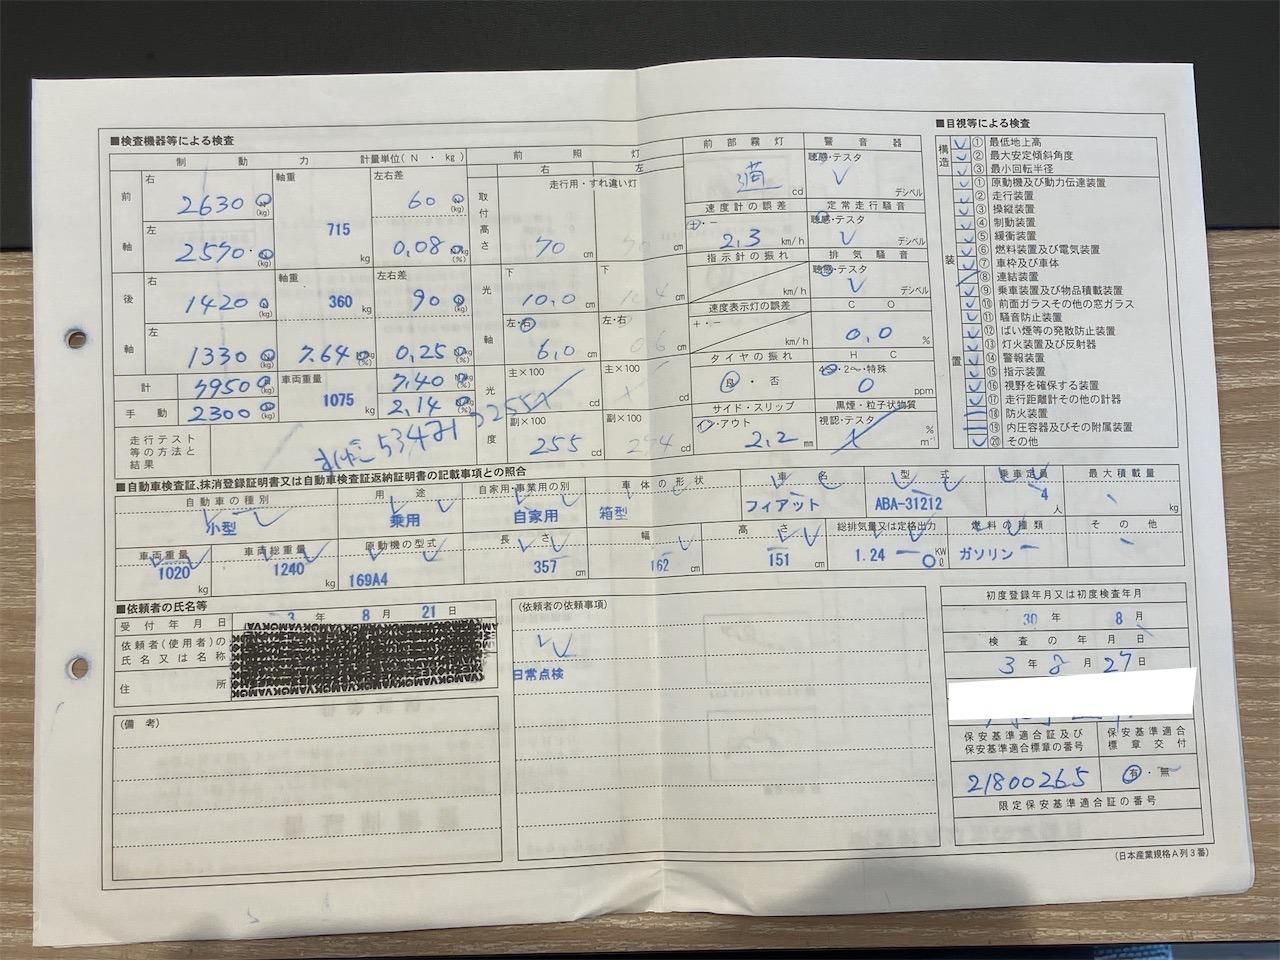 ■検査機器等による検査
制動力 計量単位(N・kg)
前軸
右 2630 N (kg)
左 2570 N (kg)
軸重 715 kg
左右差 60 N (kg)
0.08 N/kg (%)
後軸
右 1420 N (kg)
左 1330 N (kg)
軸重 360 kg
7.64 N/kg (%)
左右差 90 N (kg)
0.25 N/kg (%)
計 7950 N (kg)
手動 2300 N (kg)
車両重量 1075 kg
7.40 N/kg (%)
2.14 N/kg (%)
走行テスト等の方法と結果
53471
前照灯
右 左
走行用・すれ違い灯
取付高さ 70 cm cm
光軸
下 10.0 cm 下 cm
左・右 6.0 cm 左・右 cm
光度
主×100 cd 主×100 cd
副×100 255 cd 副×100 cd
前部霧灯
適 cd
速度計の誤差
+・- 2.3 km/h
指示針の振れ
km/h
速度表示灯の誤差
+・- km/h
タイヤの振れ
良・否
サイド・スリップ
イン・アウト 2.2 mm
警音器
聴感・テスタ
デシベル
定常走行騒音
聴感・テスタ
デシベル
排気騒音
聴感・テスタ
デシベル
CO
0.0 %
HC
4・2・特殊
0 ppm
黒煙・粒子状物質
視認・テスタ
%
m⁻¹
■目視等による検査
構造
①最低地上高
②最大安定傾斜角度
③最小回転半径
装置
①原動機及び動力伝達装置
②走行装置
③操縦装置
④制動装置
⑤緩衝装置
⑥燃料装置及び電気装置
⑦車枠及び車体
⑧連結装置
⑨乗車装置及び物品積載装置
⑩前面ガラスその他の窓ガラス
⑪騒音防止装置
⑫ばい煙等の発散防止装置
⑬灯火装置及び反射器
⑭警報装置
⑮指示装置
⑯視野を確保する装置
⑰走行距離計その他の計器
⑱防火装置
⑲内圧容器及びその附属装置
⑳その他
■自動車検査証、抹消登録証明書又は自動車検査証返納証明書の記載事項との照合
自動車の種別 用途 自家用・事業用の別 車体の形状 車名 型式 乗車定員 最大積載量
小型 乗用 自家用 箱型 フィアット ABA-31212 4 人 kg
車両重量 車両総重量 原動機の型式 長さ 幅 高さ 総排気量又は定格出力 燃料の種類 その他
1020 kg 1240 kg 169A4 357 cm 162 cm 151 cm 1.24 KW ℓ ガソリン
■依頼者の氏名等
受付年月日 3 年 8 月 21 日
依頼者(使用者)の氏名又は名称
住所
(備考)
(依頼者の依頼事項)
日常点検
初度登録年月又は初度検査年月
30 年 8 月
検査の年月日
3 年 8 月 27 日
保安基準適合証及び保安基準適合標章の番号
21800265
保安基準適合標章交付
有・無
限定保安基準適合証の番号
(日本産業規格A列3番)